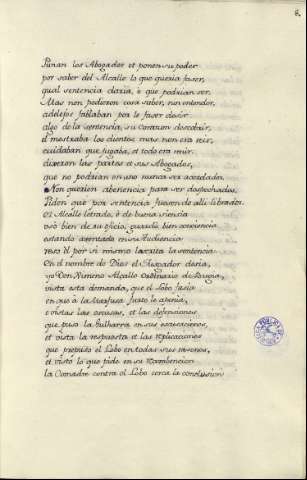 6.
Punan los Abogados et ponen su poder
por saber del Alcalle lo que queria faser,
qual sentencia daria, o que podrian ser.
Mas non podieron cosa saber, nin entender,
adelejos fablaban por le faser desir
algo de la sentencia, su corazon descobrir,
él mostraba los dientes, mas non era reir,
cuidaban que jugaba, et todo era reñir.
dixeron las partes et sus Abogados,
que no podrian en uno nunca ser acordados.
Non querien abenencia para ser despechados,
Piden que por sentencia fuesen de alli librados.
El Alcalle letrado, è de buena siencia
usó bien de su oficio, guardó bien conciencia
estando asentado en su Audiencia
rezó él por si mismo escrita la sentencia
En el nombre de Dios el Jusgador desia,
yo Don Ximeno Alcalle Ordinario de Bugia,
vista esta demanda, que el Lobo fasia
en que à la Marfusa furto le aponia,
è vistas las excusas, et las defensiones
que puso la Gulharra en sus exceuciones,
et vista la respuesta et las replicaciones
que propuso el Lobo en todas sus rasones,
et visto lo que pide en su reconbencion
la Comadre contra el Lobo cerca la conclusion